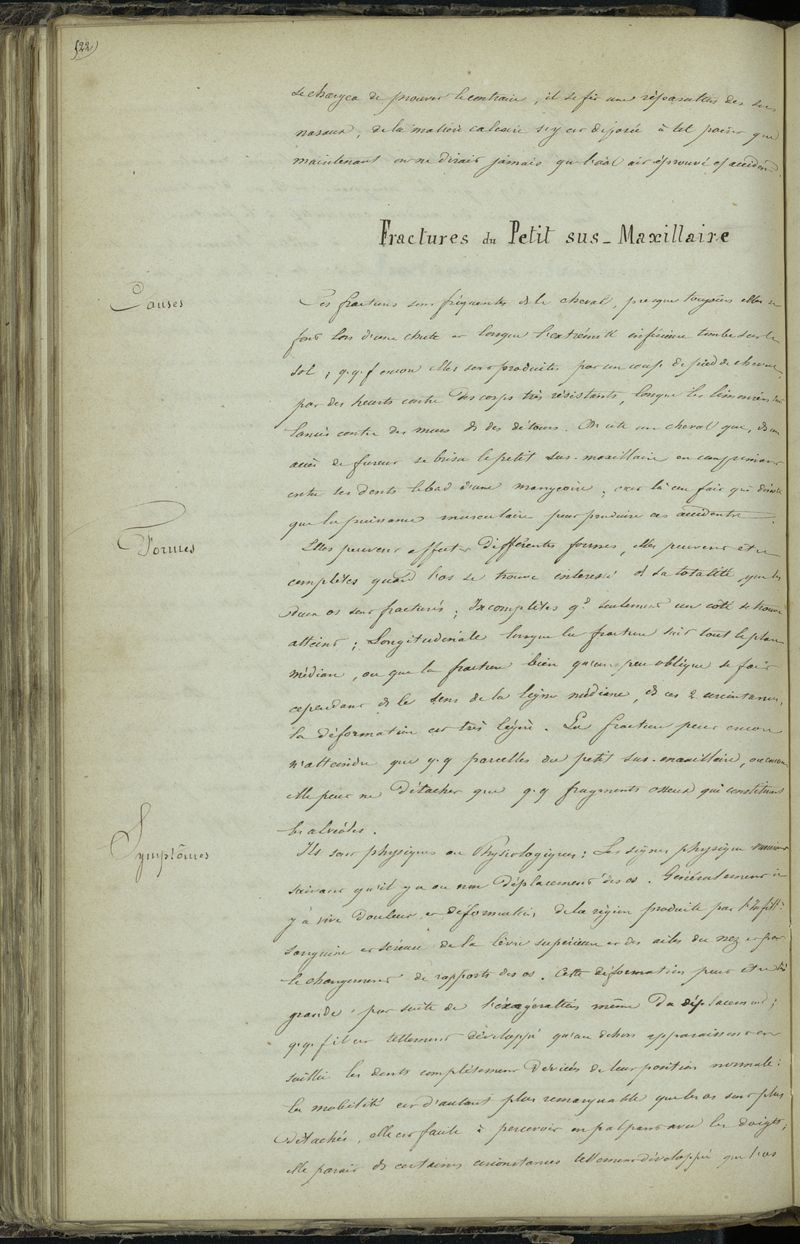 522
se chargea de prouver le contraire, il se fit une réparation des sus
nasaux, de la matière calcaire s'y est déposée à tel point que
maintenant on ne dirait jamais que l'anl ait éprouvé cet accident.
Fractures du Petit sus-Maxillaire
Causes
Ces fractures sont fréquentes ds le cheval, presque toujours elles se
font lors d'une chute et lorsque l'extrémité inférieure tombe sur le
sol ; q.q.f encore elles sont produites par un coup de pied de cheval,
par des heurts contre des corps très résistants, lorsque les limoniers sont
lancés contre des murs ds des détours. On cite un cheval que, ds un
accès de fureur se brisa le petit sus-maxillaire en comprimant
entre les dents le bord d'une mangeoire ; c'est là un fait qui dénote
que la puissance musculaire peut produire ces accidents.
Formes
Elles peuvent affecter différentes formes, elles peuvent être
complètes quand l'os se trouve intéressé ds sa totalité, que les
deux os sont fracturés ; Incomplètes qd seulement un côté se trouve
atteint ; Longitudinale lorsque la fracture suit tout le plan
médian, ou que la fracture bien qu'un peu oblique se fait
cependant ds le sens de la ligne médiane, ds ces 2 circonstances,
la déformation est très légère. La fracture peut encore
n'atteindre que q.q parcelles du petit sus-maxillaire, ou encore
elle peut ne détacher que q.q fragments osseux qui constituent
les alvéoles.
Symptômes
Ils sont physiques ou Physiologiques ; Les signes physiques varient
suivant qu'il y a ou non déplacement des os. Généralement il
y a vive douleur et déformation de la région produite par l'infilt:
sanguine et séreuse de la lèvre supérieure et des ailes du nez et par
le changement de rapports des os. Cette déformation peut être très
grande par suite de l'exagération même du déplacement ;
q.q.f il est tellement développé qu'au dehors apparaissent en
saillie les dents complètement déviées de leur position normale :
la mobilité est d'autant plus remarquable que les os sont plus
détachés, elle est facile à percevoir en palpant avec les doigts,
elle paraît ds certaines circonstances tellement développée que l'os